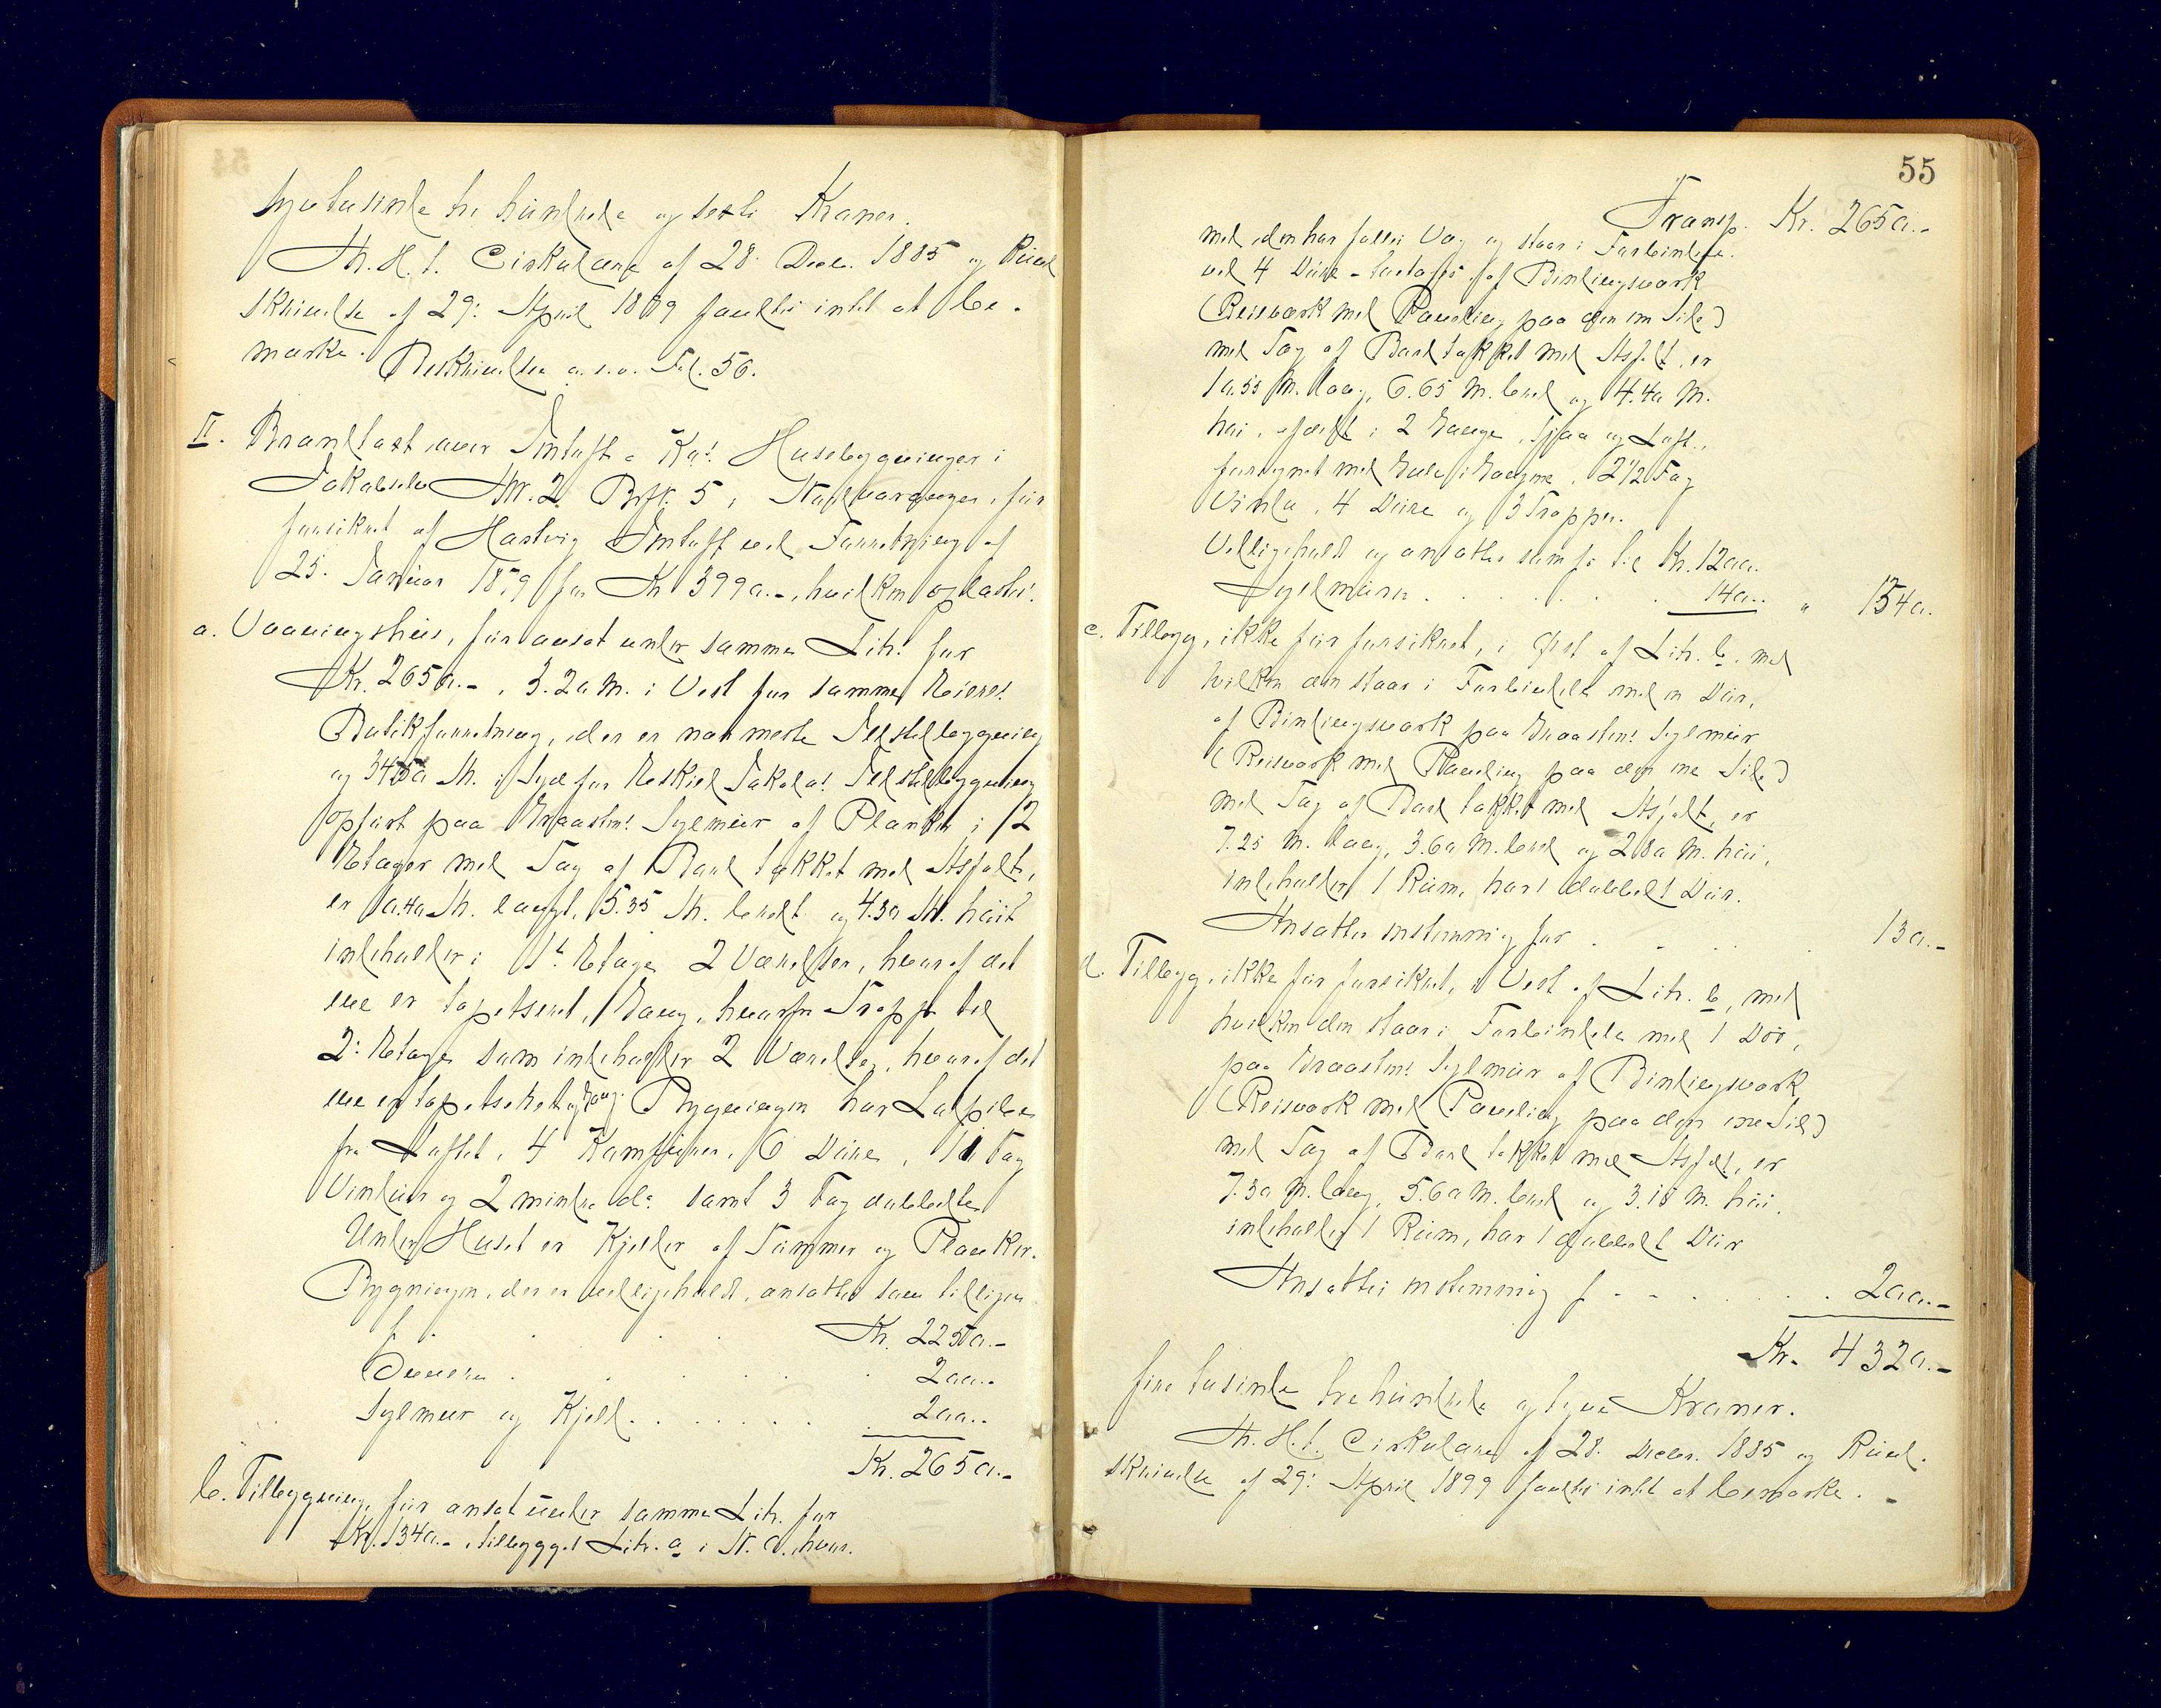 syvtusinde tre hundrede og seksti Kroner.
Th. H. t. Cirkulære af 28. Decb. 1885 og Rund
skrivelse af 29: April 1899 fandtes intet at be-
mærke. Beskrivelse a. s. o. Fol. 56.
II. Brandtaxt over Smtoft & Ko's Husebygninger i
Jakobselv Mr. 2 Brk. 5, Nordvaranger, før
forsikret af Hartvig Smtoft ved Forretning af
25. Januar 1879 for Kr 3990.-, hvilken opløstes.
a. Vaaningshus, før ansat under samme Litr. for
Kr. 2650.-, 3.20 M. i Vest for samme Eieres
Butikforretning, der er nærmeste Ildstedbygning
og 34.50 M. i Syd for Eskiel Jakolas Ildstedbygning
opført paa Graastens Sylmur af Planker i 2
Etager med Tag af Bord tækket med Asfalt,
er 10.40 M. langt, 5.35 M. bredt og 4.30 M. høit
indeholder i 1ste Etage 2 Værelser, hvoraf det
ene er tapetseret, Gang, hvorfra Trappe til
2: Etage som indeholder 2 Værelser, hvoraf det
ene er tapetseret og Gang. Bygningen har Løbpibe
fra Loftet, 4 Kamfiner, 6 Døre, 11 Fag
Vinduer og 2 mindre do. samt 3 Fag dobbelte
Under Huset er Kjelder af Tømmer og Planker.
Bygningen, der er vedligeholdt, ansattes som tilligen
f. . . . . Kr. 2250.-
Ovnene . . . . . 200.-
Sylmur og Kjeld. . . . . . 200.-
Kr. 2650.-
b. Tilbygning, før ansat under samme Litr. for
Kr. 1340.-, tilbygget Litr. a i N. O. hvor-
55
Transp. Kr. 2650.-
med den har fælles Væg og staar i Forbindelse
ved 4 Døre - af Bindingsværk
(Reisværk med Paneling paa den ene Side)
med Tag af Bord tækket med Asfalt, er
10.55 M. lang, 6.65 M. bred og 4.40 M.
høi, afdelt i 2 Gange, Sjaa og Loft,
forsynet med Gulv i Gangene, 2 1/2 Fag
Vindu, 4 Døre og 3 Trapper.
Velligeholdt og ansattes som før til Kr. 1200.
Sylmuren . . . . . . 140.. " 1340.
c. Tilbygg, ikke før forsikret, i Øst af Litr. b, med
hvilken den staar i Forbindelse med en Dør,
af Bindingsværk paa Graastens Sylmur
(Reisværk med Paneling paa den ene Side)
med Tag af Bord tækket med Asfalt, er
7.25 M. lang, 3.60 M. bred og 2.80 M. høi,
indeholder 1 Rum, har 1 dobbelt Dør.
Ansattes enstemmig for . . . . 130.-
d. Tilbygg, ikke før forsikret, i Vest af Litr. b, med
hvilken den staar i Forbindelse med 1 Dør,
paa Graastens Sylmur af Bindingsværk
(Reisværk med Paneling paa den ene Side)
med Tag af Bord tækket med Asfalt, er
7.30 M. lang, 5.60 M. bred og 3.15 M. høi,
indeholder 1 Rum, har 1 dobbelt Dør
Ansattes enstemmig f. . . . . . . 200.-
Kr. 4320.-
fire tusinde trehundrede og tyve Kroner.
Th. H. t. Cirkulære af 28. Decbr. 1885 og Rund-
skrivelse af 29: April 1899 fandtes intet at bemærke. -